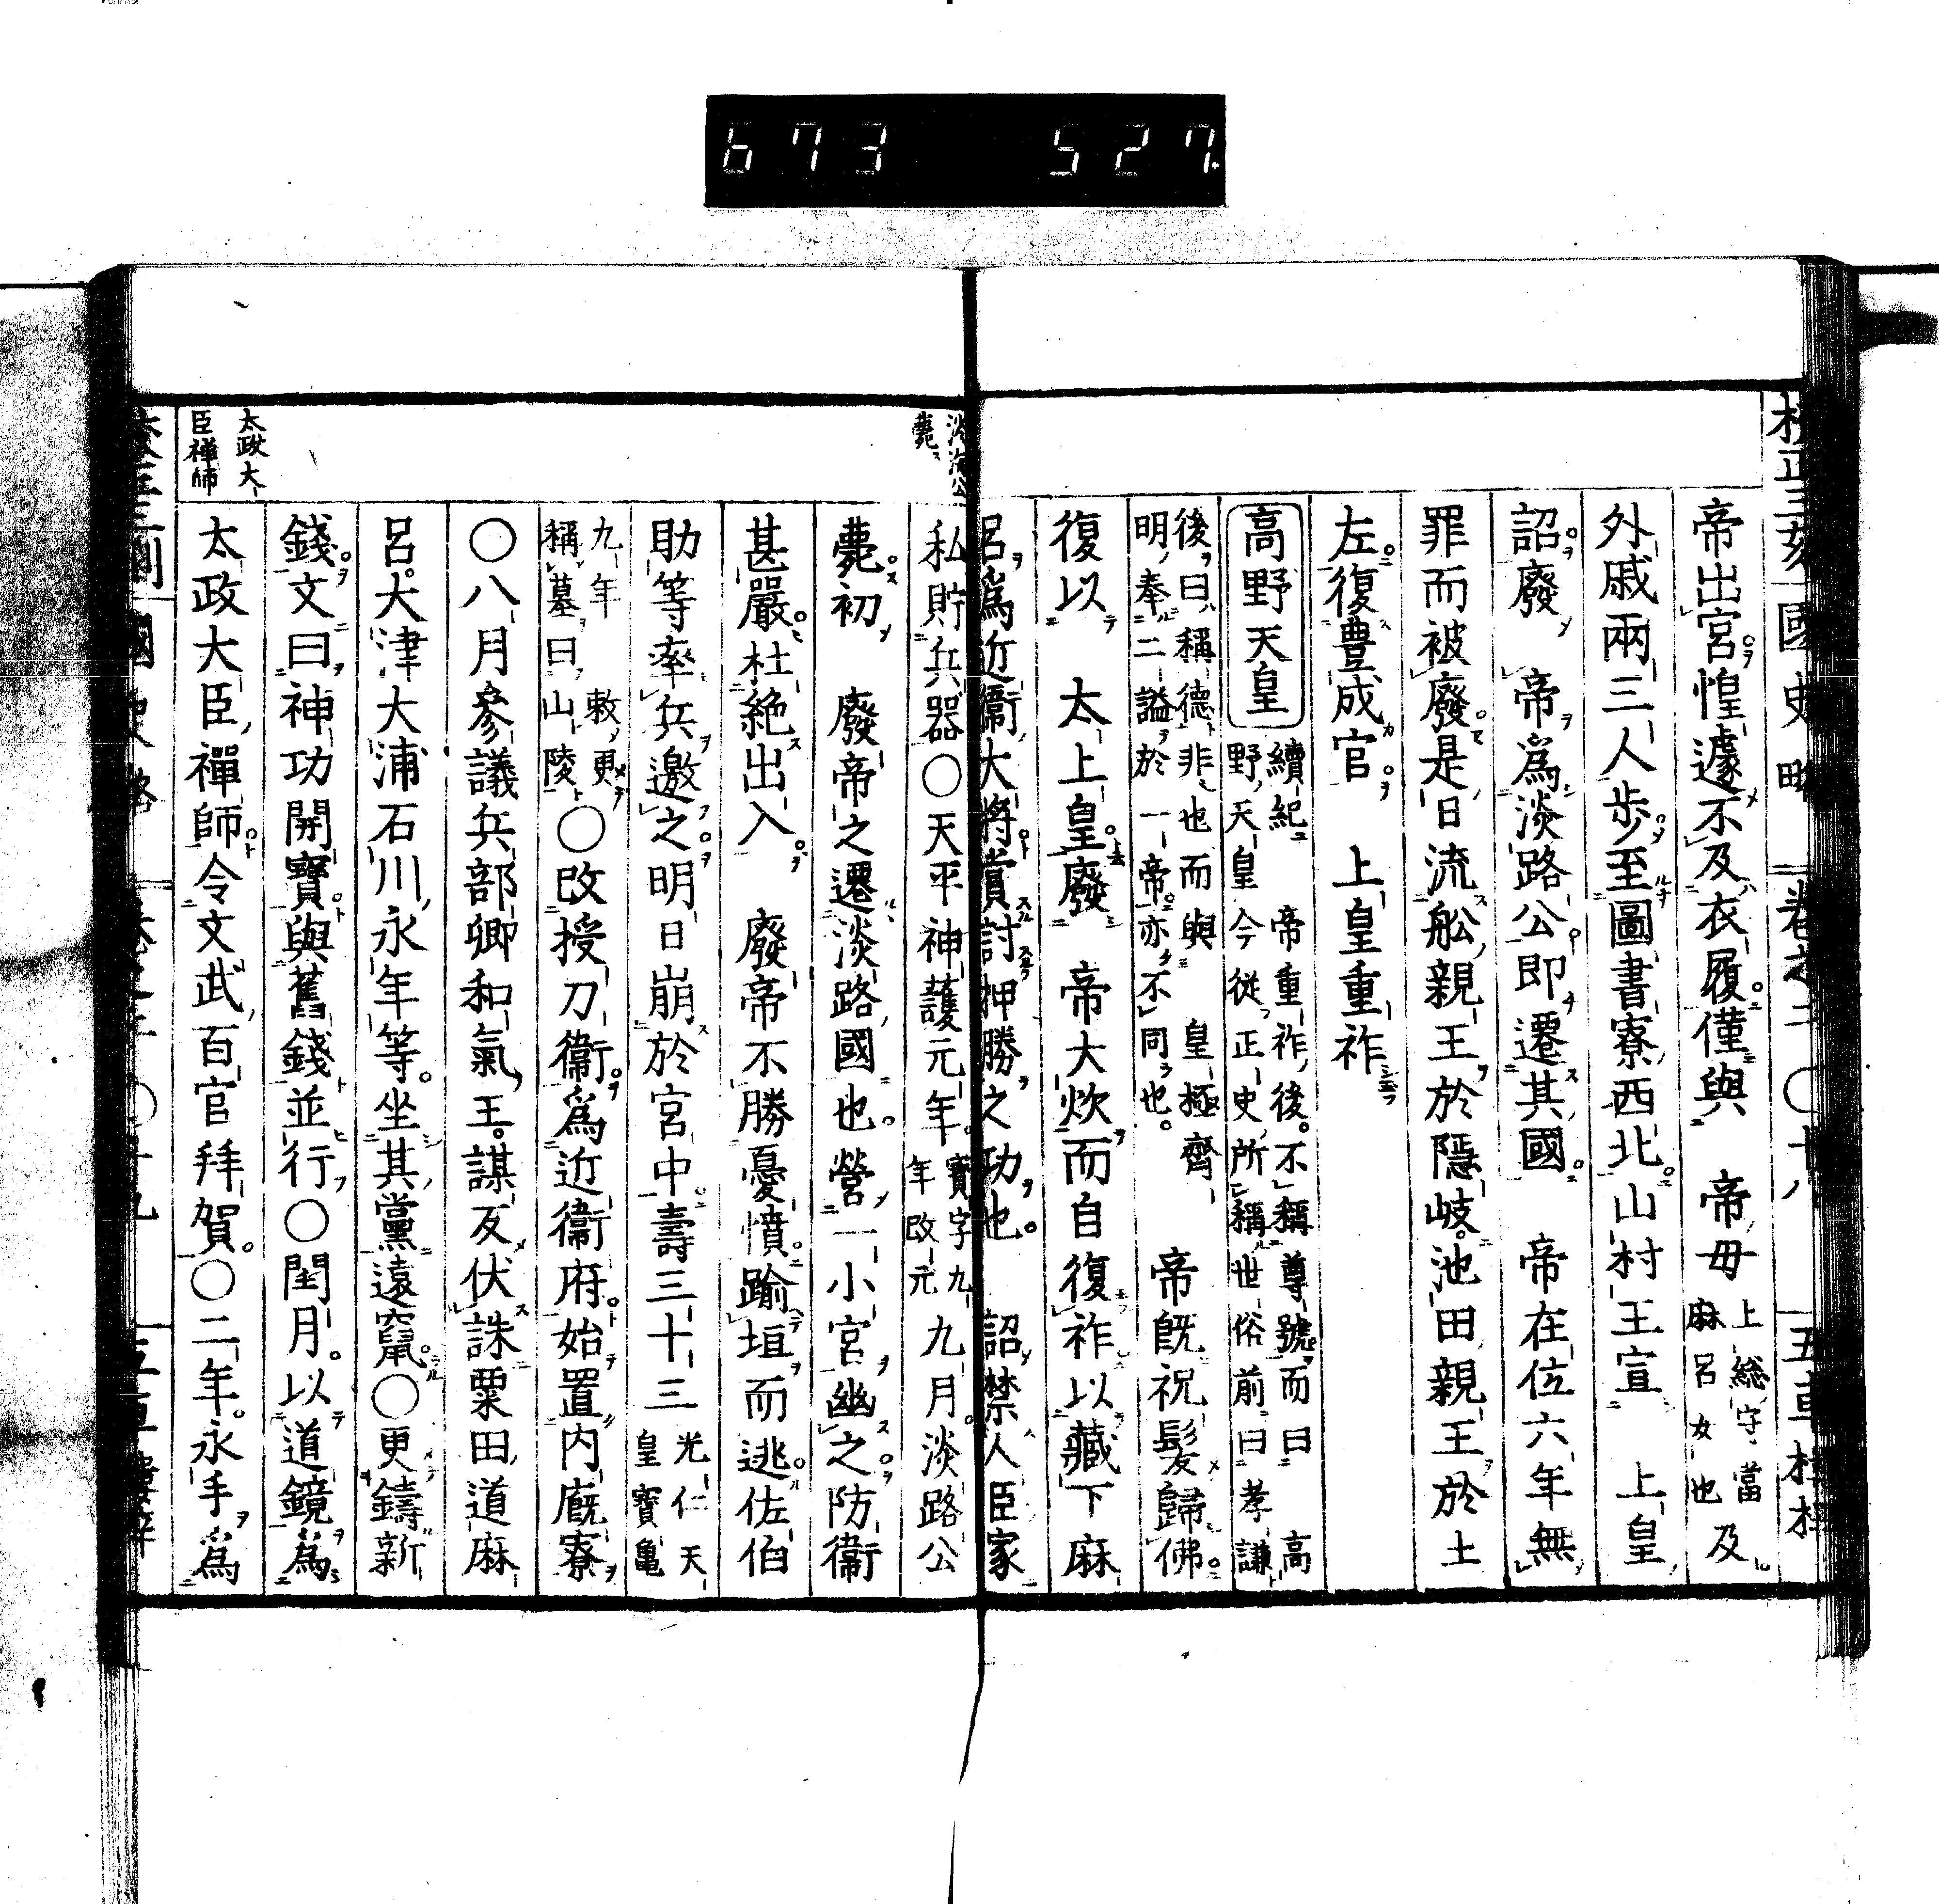 673 527
校正三刻 國史略 卷之二 〇十八 五車樓梓
帝出宮惶遽不及衣履僅與 帝母上總守當麻呂女也及
外戚兩三人步至圖書寮西北山村王宣 上皇
詔廢 帝爲淡路公即遷其國 帝在位六年無
罪而被廢是日流舩親王於隱岐池田親王於土
左復豊成官 上皇重祚
高野天皇 續紀 帝重祚後不稱尊號而曰高野天皇今從正史所稱世俗前曰孝謙
後曰稱德非也而與 皇極齊明奉二謚於一帝亦不同也 帝既祝髮歸佛
復以 太上皇廢 帝大炊而自復祚以藏下麻
呂爲近衞大將賞討押勝之功也 詔禁人臣家
淡海公薨
私貯兵器〇天平神護元年寶字九年改元九月淡路公
薨初 廢帝之遷淡路國也營一小宮幽之防衞
甚嚴杜絶出入 廢帝不勝憂憤踰垣而逃佐伯
助等率兵邀之明日崩於宮中壽三十三光仁天皇寶亀
九年敕更稱墓曰山陵〇改授刀衞爲近衞府始置内廐寮
〇八月參議兵部卿和氣王謀反伏誅粟田道麻
呂大津大浦石川永年等坐其黨遠竄〇更鑄新
錢文曰神功開寶與舊錢並行〇閏月以道鏡爲
太政大臣禪師
太政大臣禪師令文武百官拜賀〇二年永手爲